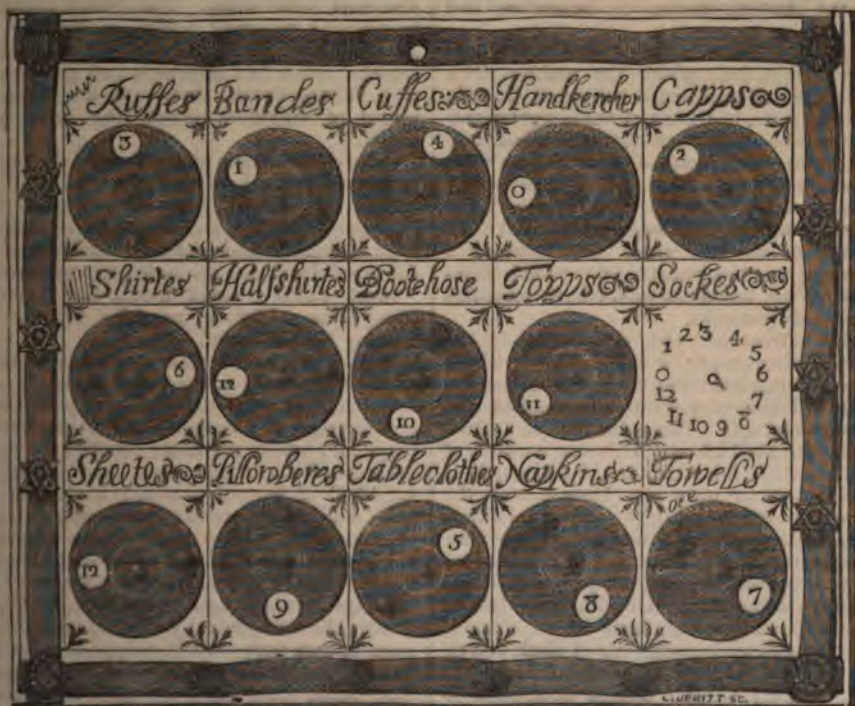 Ruffes Bandes Cuffes Handkercher Capps
3 1 4 0 2
Shirtes Halfshirtes Bootehose Topps Sockes
6 12 10 11 1 2 3 4 5 6 7 8 9 10 11 12 0
Sheetes Pillowberes Tableclothes Napkins Towells
12 9 5 8 7